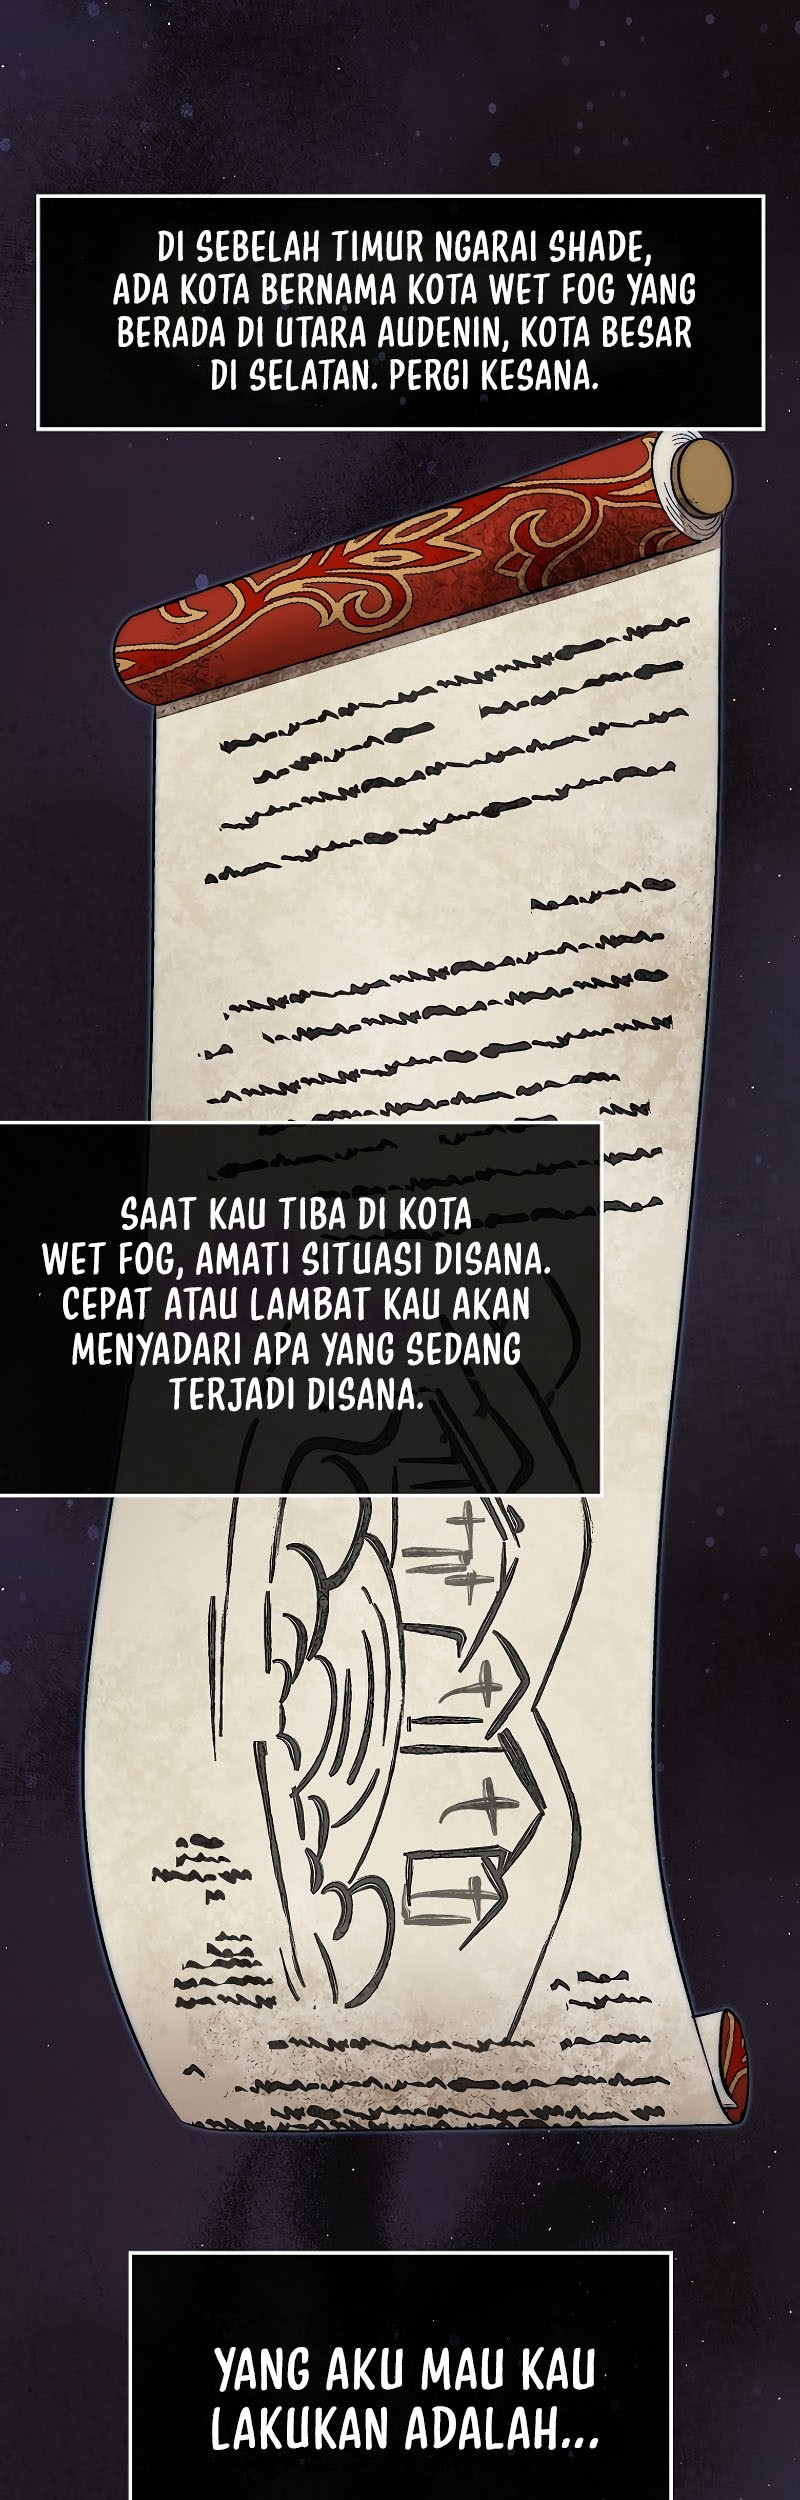 DI SEBELAH TIMUR NGARAI SHADE,
ADA KOTA BERNAMA KOTA WET FOG YANG
BERADA DI UTARA AUDENIN, KOTA BESAR
DI SELATAN. PERGI KESANA.
SAAT KAU TIBA DI KOTA
WET FOG, AMATI SITUASI DISANA.
CEPAT ATAU LAMBAT KAU AKAN
MENYADARI APA YANG SEDANG
TERJADI DISANA.
YANG AKU MAU KAU
LAKUKAN ADALAH...